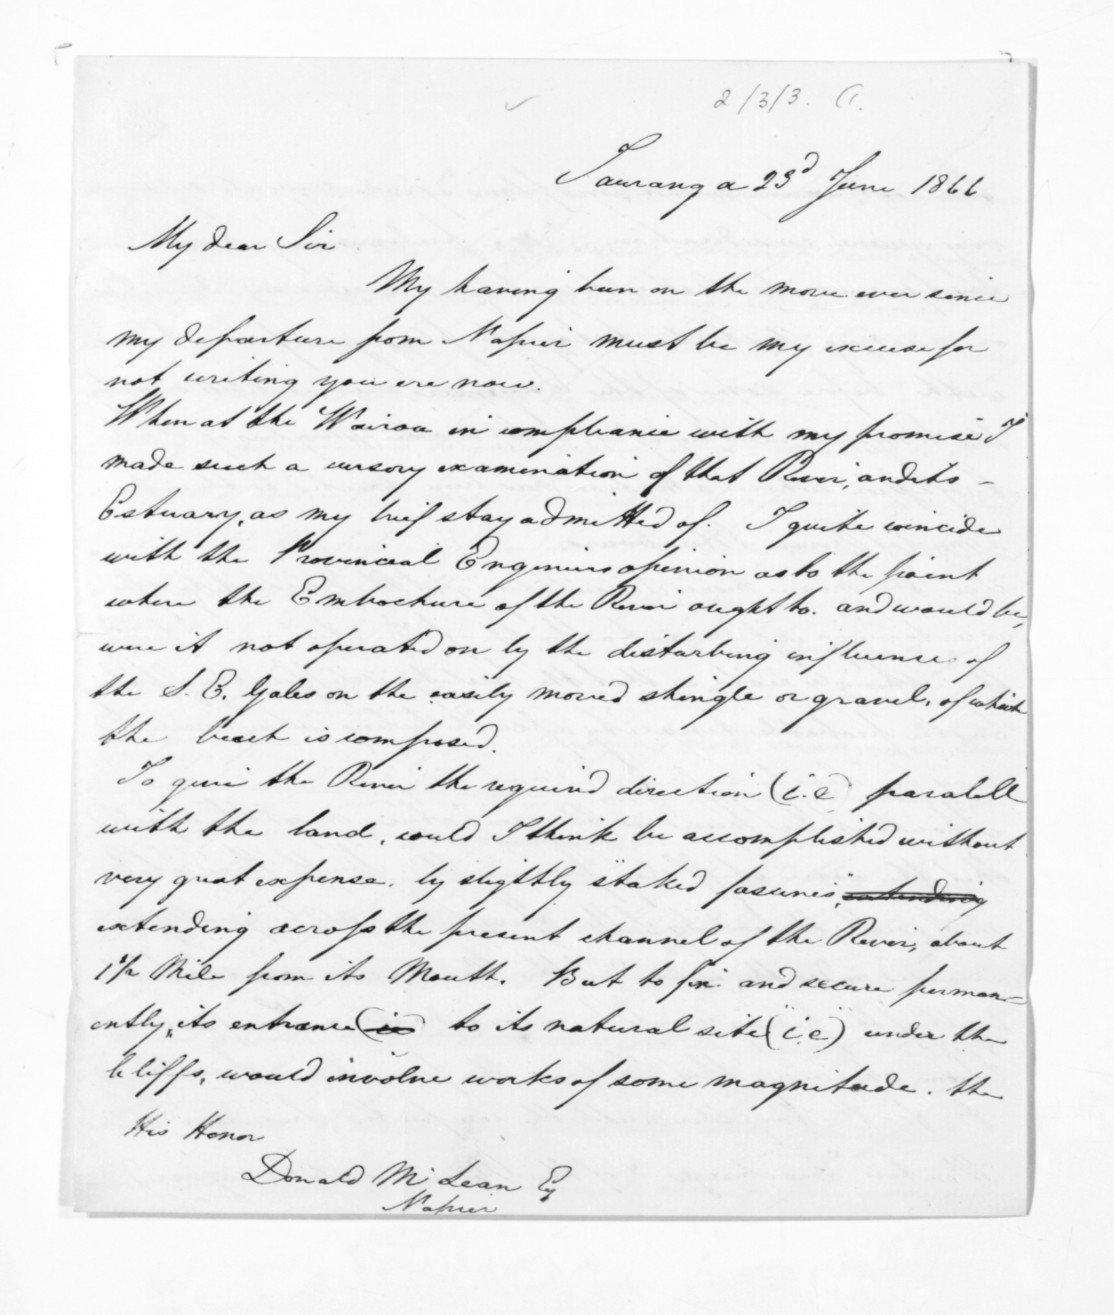 2/3/3. G.
Tauranga 23d June 1866
My dear Sir
My having been on the move ever since
my departure from Napier must be my excuse for
not writing you ere now.
When at the Wairoa in compliance with my promise I
made such a cursory examination of that River, and its -
Estuary, as my brief stay admitted of. I quite coincide
with the Provincial Engineers opinion as to the point
where the Embochure of the River ought to. and would be,
were it not operated on by the disturbing influence of
the S. E. Gales on the easily moved shingle or gravel, of which
the beach is composed.
To give the River the required direction (i.e) paralell
with the land, would I think be accomplished without
very great expense. by slightly "staked fascines", extending
extending across the present channel of the River, about
1½ Mile from its Mouth. But to fix and secure perman=
ently, its entrance (ie) to its natural site (i.e) under the
Cliffs, would involve works of some magnitude. the
His Honor
Donald McLean Esq
Napier